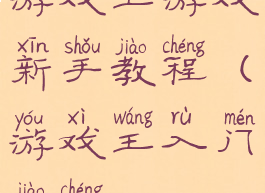 游戏王游戏
xīn shǒu jiào chéng
新手教程（
yóu xì wáng rù mén
游戏王入门
jiào chéng